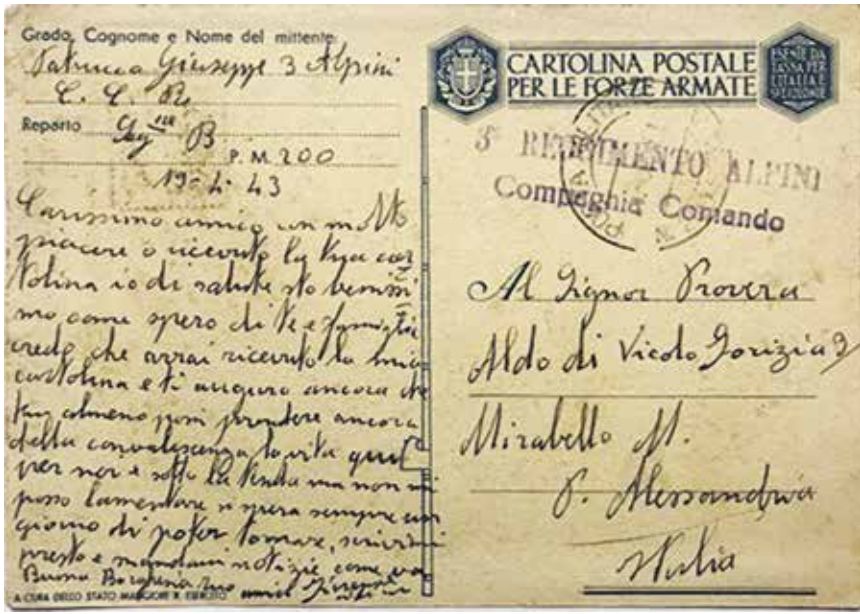 Grado, Cognome e Nome del mittente
Patrucco Giuseppe 3 Alpini
C. C. R.
Reparto Seg B
P. M 200
19-4-43
Carissimo amico un molto
piacere o ricevuto la tua car
tolina io di salute sto benissi
mo come spero di te e famiglia
credo che avrai ricevuto la mia
cartolina e ti auguro ancora che
tu almeno possi prendere ancora
della convalescenza la vita qui
per noi e sotto la tenda ma non mi
posso lamentare si spera sempre un
giorno di poter tornare, scrivimi
presto e mandami notizie come va
Buona tuo amico Giuseppe
A CURA DELLO STATO MAGGIORE R. ESERCITO
CARTOLINA POSTALE
PER LE FORZE ARMATE
ESENTE DA
TASSA PER
L'ITALIA E
3° REGGIMENTO ALPINI
Compagnia Comando
POSTA
Al Signor Provera
Aldo di Vicolo Gorizia 3
Mirabello M.
P. Alessandria
Italia